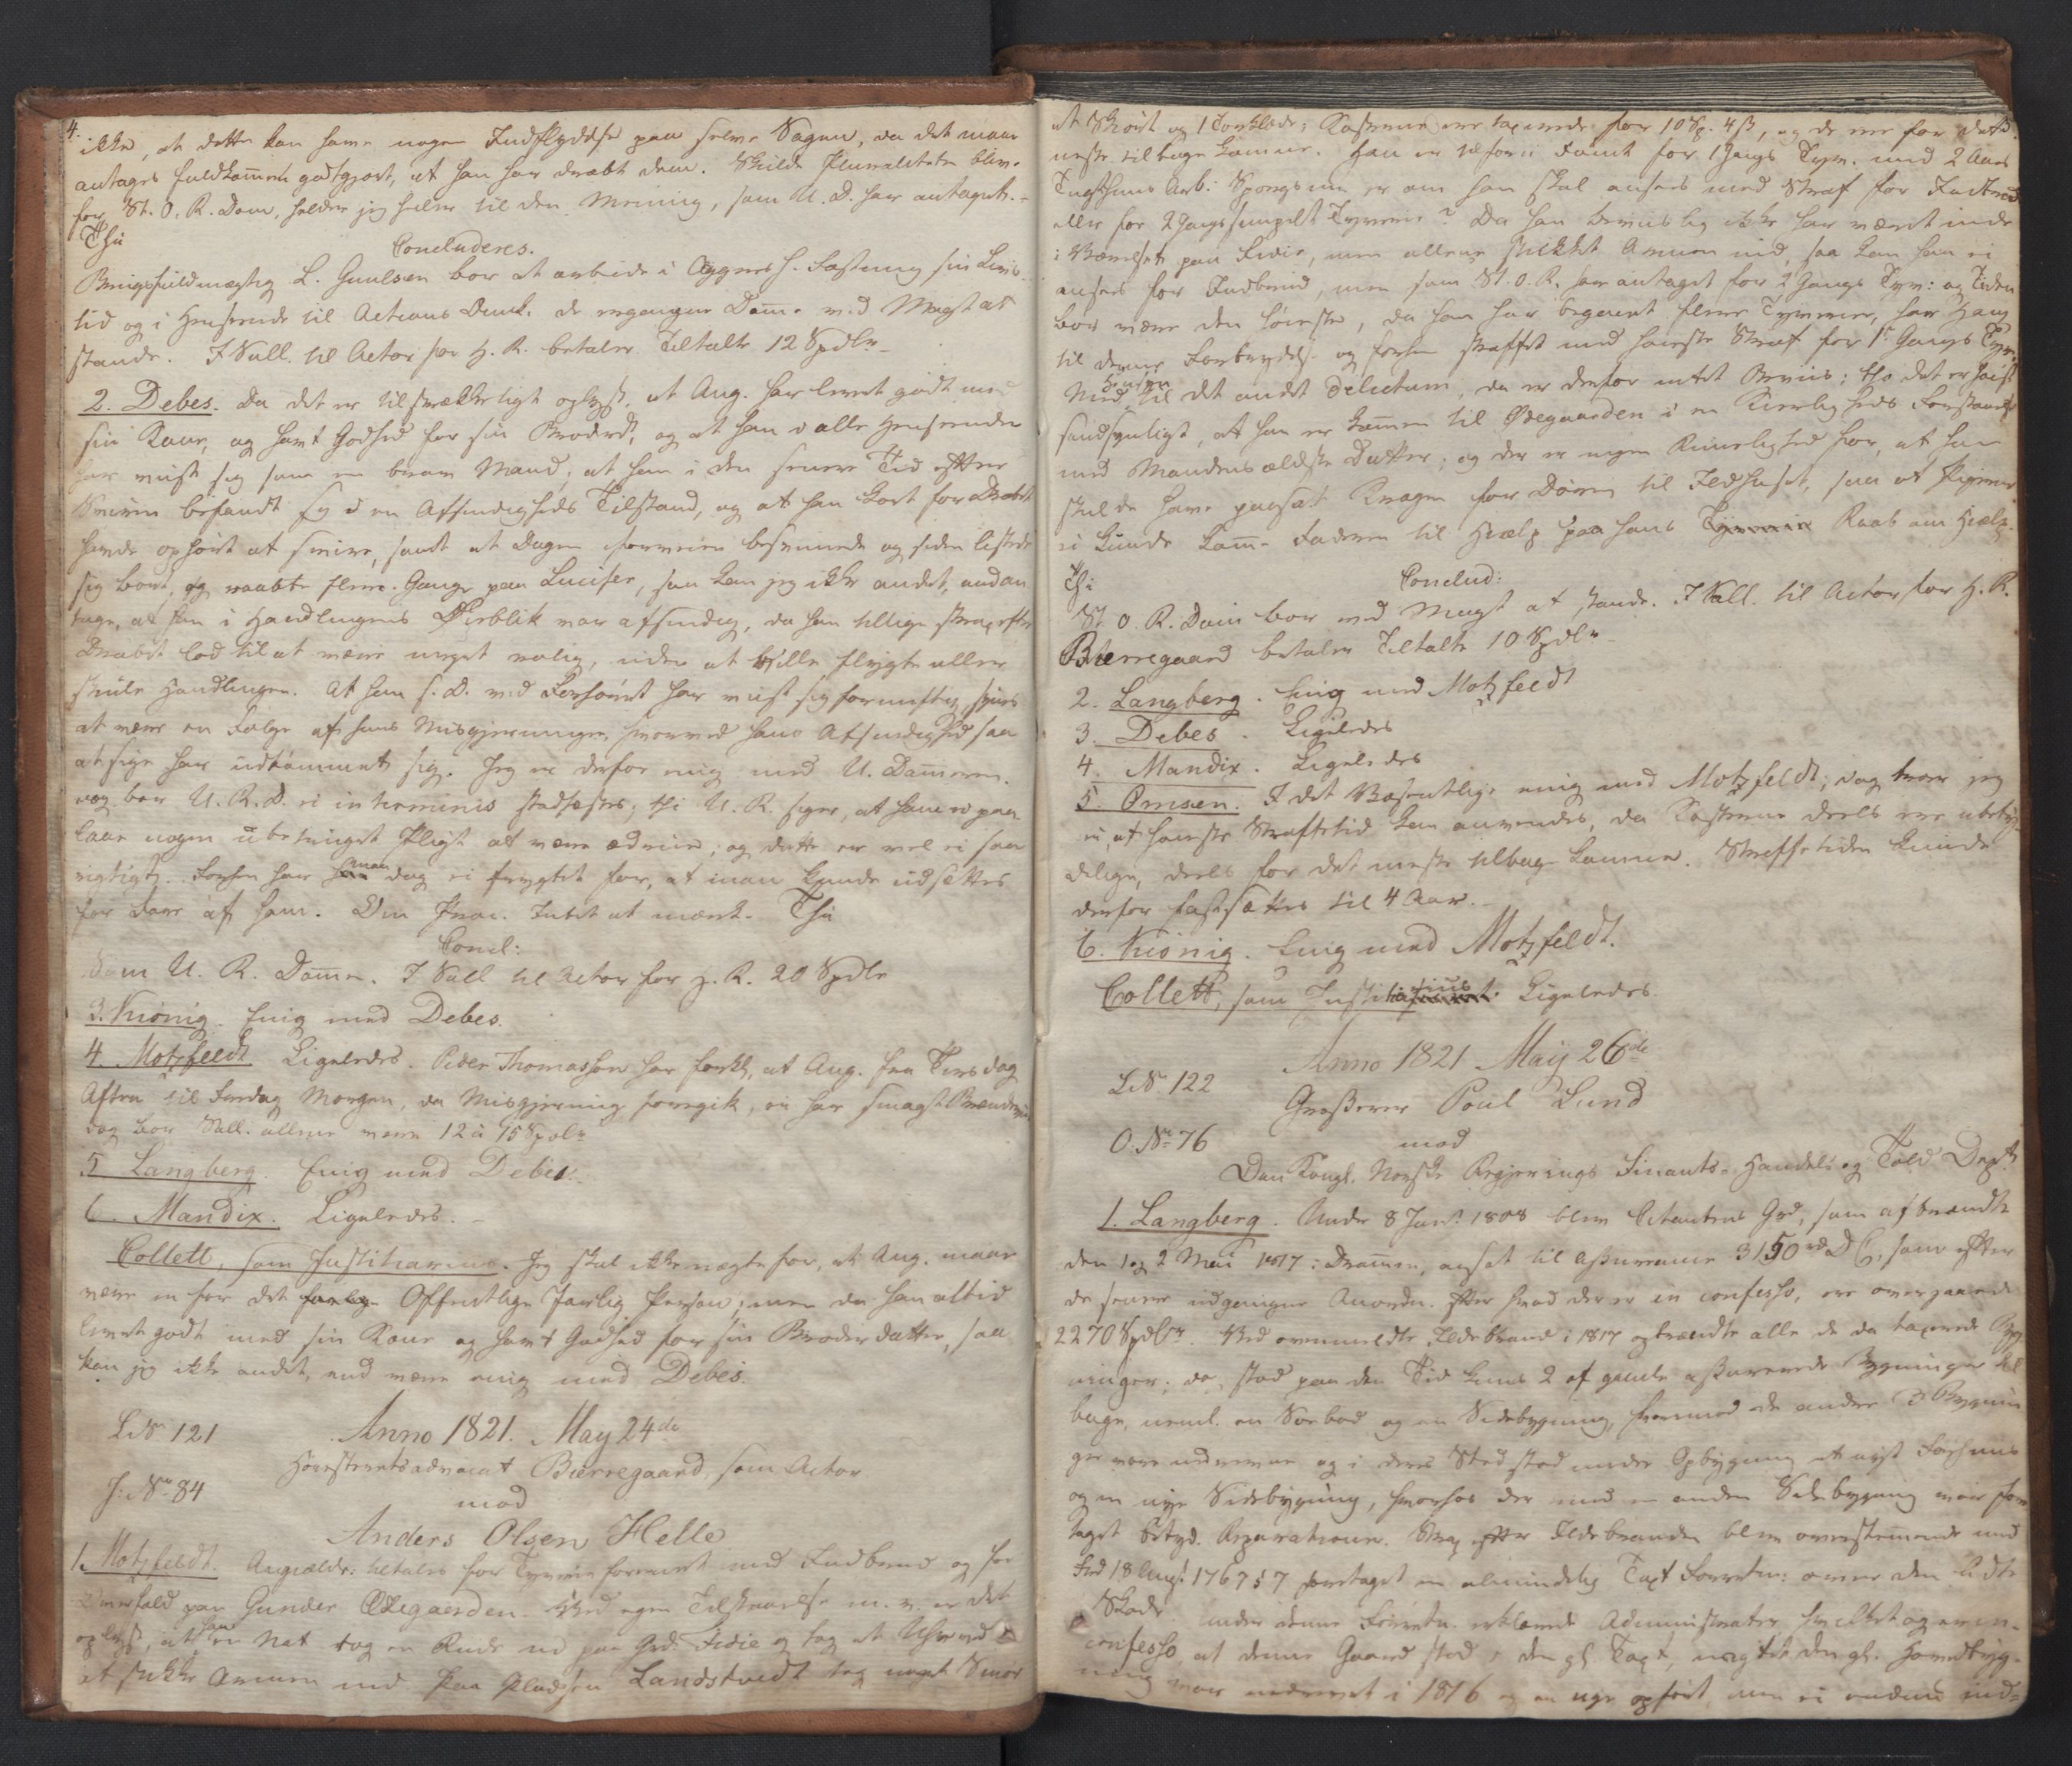 4.
ikke, at dette kan have nogen Indflydelse paa selve Sagen, da det maae
antages fuldkommen godtgjort, at han har dræbt dem. Skulde Pluraliteten blive
for St. O. R. Dom, holder jeg heller til den Mening, som U. D. har antaget. -
Thi
Concluderes.
Brugsfuldmægtig L. Guulsen bør at arbeide i Aggersh. Fæstning sin Livs-
tid og i Henseende til Actions Omk. de ergangne Domme ved Magt at
stande. I Sall. til Actor for H. R. betaler Tiltalte 12 Spdlr
2. Debes. Da det er tilstrækkeligt oplyst, at Ang. har levet godt med
sin Kone, og havt Godhed for sin Broderd., og at han i alle Henseender
har viist sig som en brav Mand, at han i den senere Tid efter
Sviren befandt sig i en Afsindigheds Tilstand, og at han kort før Drabet
havde ophørt at svire, samt at Dagen forveien besvimede og siden listede
sig bort, og raabte flere Gange paa Lucifer, saa kan jeg ikke andet, end an
tage, at han i Handlingens Øieblik var afsindig, da han tillige strax efter
Drabet lod til at være meget rolig, uden at ville flygte eller
skiule Handlingen. At han s. D. ved Forhøret har viist sig fornuftig, synes
at være en Følge af hans Misgjerninger, hvorved hans Afsindighed saa
at sige har udtømmet sig. Jeg er derfor enig med U. Dommeren.
dog bør U. R. D. ei in terminis stadfæstes; thi U. R. siger, at ham ei paa-
laae nogen ubetinget Pligt at være ædrue; og dette er vel ei saa
rigtigt. Forhen har man dog ei frygtet for, at man kunde udsættes
for Fare af ham. Om Proc. Intet at mærke. Thi
Concl:
Som U. R. Domme. I Sall til Actor for H. R. 20 Spdlr
3. Kiønig. Enig med Debes.
4. Motzfeldt. Ligeledes. Peder Thomassen har forkl, at Ang. fra Tirsdag
Aften til Fredag Morgen, da Misgjerning foregik, ei har smagt Brændeviin
dog bør Sall. allene være 12 à 15 Spdlr
5 Langberg. Enig med Debes.
6. Mandix. Ligeledes. -
Collett, som Justitiarius. Jeg skal ikke nægte for, at Ang. maae
være en for det farlige Offentlige farlig Person; men da han altid
levet godt med sin Kone og havt Godhed for sin Broderdatter, saa
kan jeg ikke andet, end være enig med Debes.
L. No 121
Anno 1821. May 24de
Høiesteretsadvocat Bierregaard, som Actor
J: No 84
mod
Anders Olsen Helle
1. Motzfeldt. Angieldte tiltales for Tyverie forøvet med Indbrud og for
Overfald paa Gunder Ødegaarden. Ved egen Tilstaaelse m. v. er det
oplyst, at han en Nat tog en Rude ud paa Grd. Fidie og tog et Uhr ved
at stikke Armen ind. Paa Pladsen Landstvedt tog noget Smør
et Skiørt og 1 Torklæde; Kosterne ere taxerede for 10 Sp. 4 ß, og de ere for det
meste tilbagekomne. Han er tilforn dømt for 1 Gangs Tyv. med 2 Aars
Tugthuus Arb: Spørgsm. er om han skal ansees med Straf for Indbrud
eller for 2 Gangs simpelt Tyverie? Da han beviislig ikke har været inde
i Værelset paa Fidie, men allene stikket Armen ind, saa kan han ei
ansees for Indbrud, men som St. O. R. har antaget for 2 Gangs Tyv: og Tiden
bør være den høieste, da han har begaaet flere Tyverier, har Hang
til denne Forbrydelse og forhen straffet med høieste Straf for 1ste Gangs Tyv.
Med Hensyn til det andet Delictum, da er derfor intet Beviis; thi det er høist
sandsynligt, at han er kommen til Ødegaarden i en Kierligheds Forstaaelse
med Mandens ældste Datter; og der er ingen Rimelighed for, at han
skulde have paasat Krogen for Døren til Ildhuset, saa at Pigerne
ei kunde komme Faderen til Hielp paa hans Tyverie Raab om Hielp.
Thi
Conclud:
St. O. R. Dom bør ved Magt at stande. I Sall. til Actor for H. R.
Bierregaard betaler Tiltalte 10 Spdlr
2. Langberg. Enig med Motzfeldt
3. Debes. Ligeledes
4. Mandix. Ligeledes
5. Omsen. I det Væsentlige enig med Motzfeldt; dog troer jeg
ei, at høieste Straffetid kan anvendes, da Kosterne deels ere ubety-
delige, deels for det meste tilbagekomne. Straffetiden kunde
derfor fastsættes til 4 Aar. -
6. Kiønig. Enig med Motzfeldt.
Collett, som Justitiarius. Ligeledes
Anno 1821 Maij 26de
L. No 122
Grosserer Poul Lund
O. No 76
mod
Den Kongl. Norske Regjerings Finants- Handels og Told Dept
1. Langberg. Under 8 Jan. 1808 blev Citantens Grd, som afbrændte
den 1 og 2 Mai 1817 i Drammen, ansat til Assurance 3150 rd D. C., som efter
de senere udgangne Anordn. efter hvad der er in confesso, ere overgaaede
2270 Spdlr. Ved ovenmeldte Ildebrand i 1817 opbrændte alle de da taxerede Byg
ninger; dog stod paa den Tid kuns 2 af gamle assurerede Bygninger til
bage, neml. en Søebod og en Sidebygning, hvorimod de andre 3 Bygnin
ger vare nedrevne og i deres Sted stod under Opbygning et nyt Forhuus
og en nye Sidebygning, hvorhos der med en anden Sidebygning var fore
taget betyd. Reparationer. Strax efter Ildebranden blev overstemmende med
Frd 18 Aug. 1767 § 7 foretaget en almindelig Taxt Forretn: over den lidte
Skade. under denne Forretn. erklærede Administrator, hvilket og er in
confesso, at denne Gaard stod i den gl. Taxt, uagtet den gl. Hovedbyg-
ning var nedrevet i 1816 og en nye opført, men ei endnu ind-